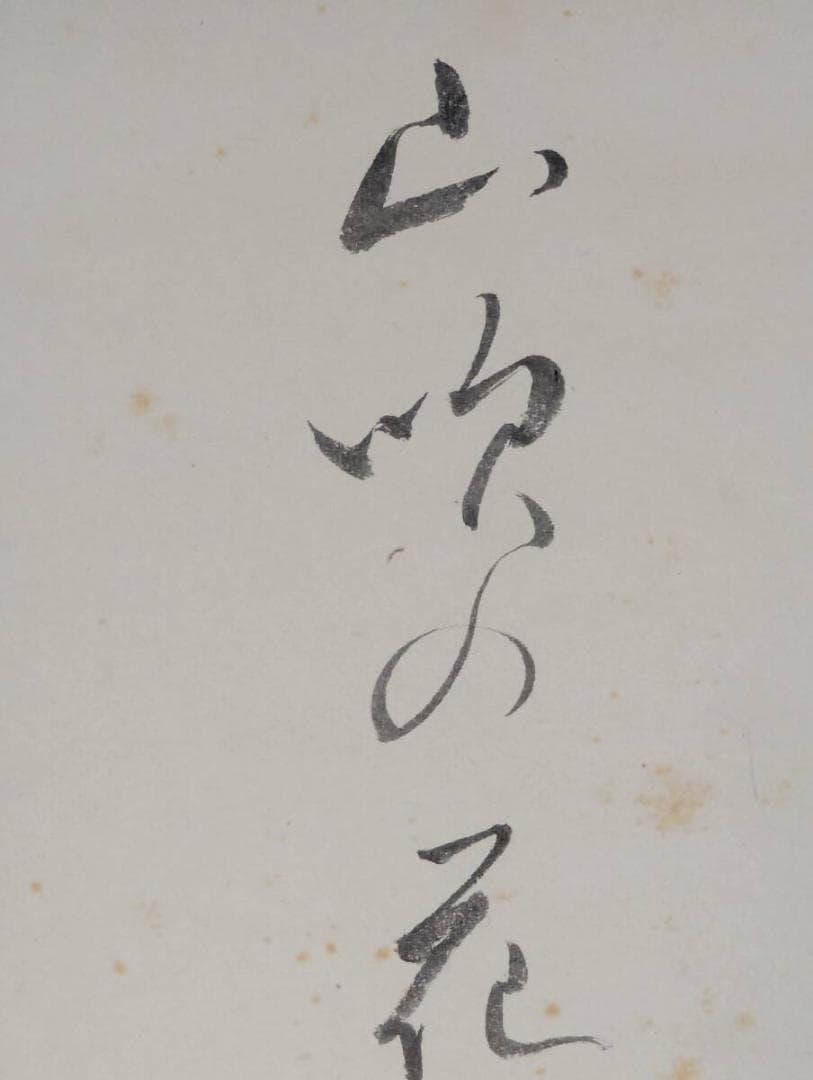 山吹の花